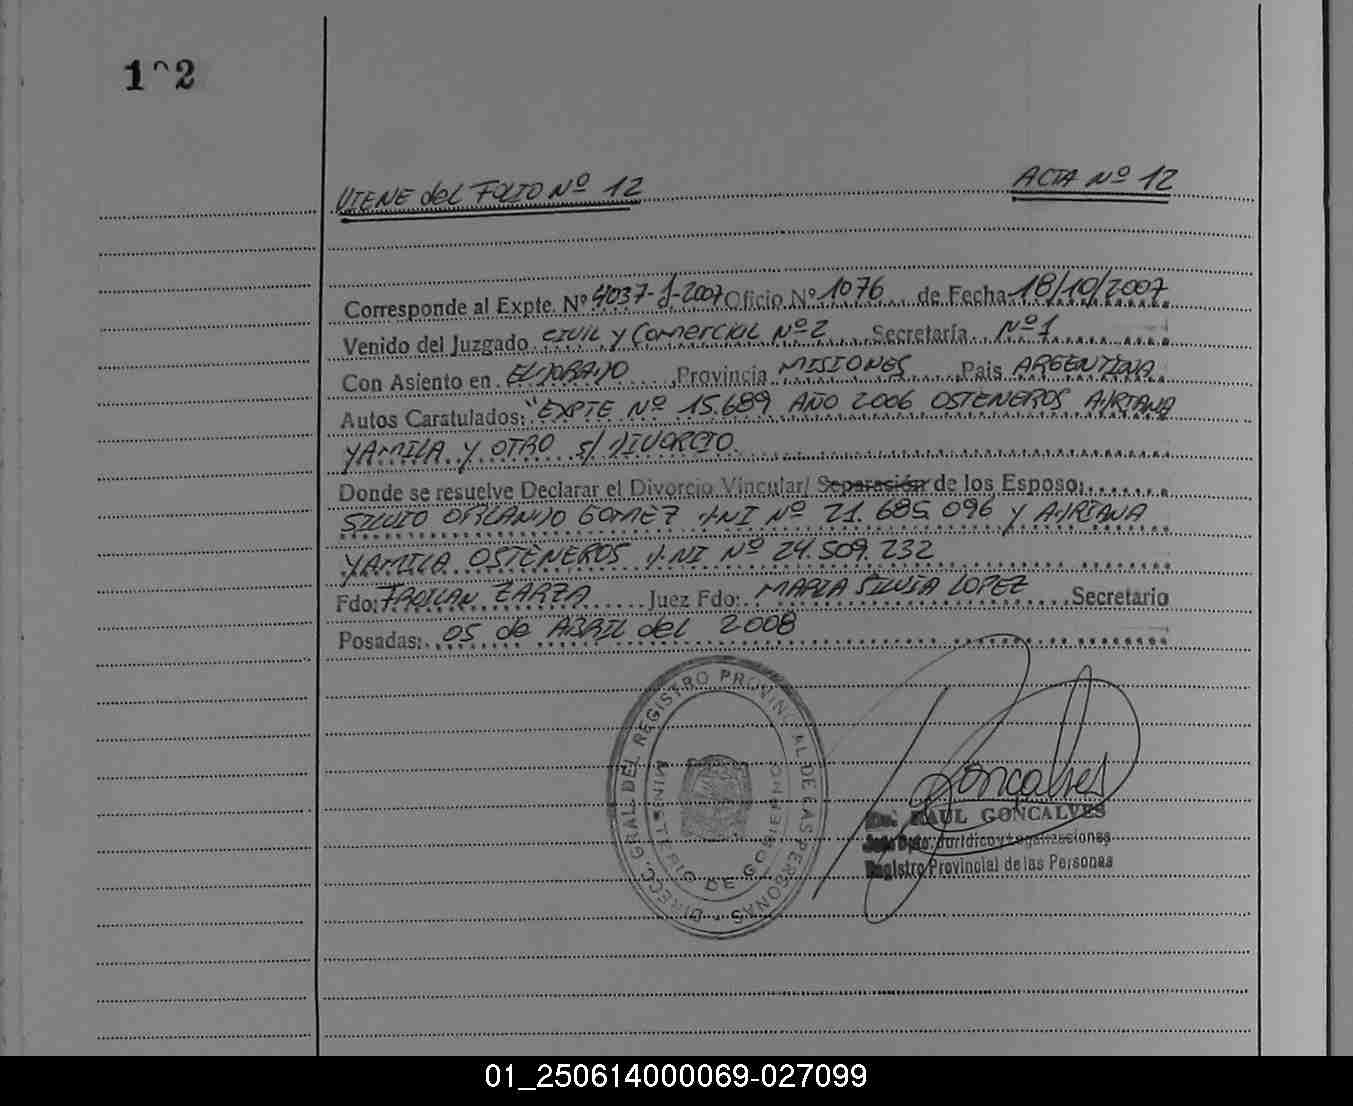 1^2
VIENE del FOLIO Nº 12
ACTA Nº 12
Corresponde al Expte. Nº 4037-J-2007 Oficio Nº 1076 de Fecha 18/10/2007
Venido del Juzgado CIVIL y Comercial Nº 2 Secretaría Nº 1
Con Asiento en ELDORADO Provincia MISIONES País ARGENTINA
Autos Caratulados: "EXPTE Nº 15.689 AÑO 2006 OSTENEROS ADRIANA
YAMILA Y OTRO s/ DIVORCIO.
Donde se resuelve Declarar el Divorcio Vincular/ Separasión de los Esposo:
SILVIO ORLANDO GOMEZ DNI Nº 21.685.096 y ADRIANA
YAMILA OSTENEROS DNI Nº 24.509.232
Fdo: FROILAN ZARZA Juez Fdo: MARIA SILVIA LOPEZ Secretario
Posadas: 05 de ABRIL del 2008
DIRECC. GRAL. DEL REGISTRO PROVINCIAL DE LAS PERSONAS
MINISTERIO DE GOBIERNO
Goncalves
RAUL GONCALVES
Jefe Dpto. Jurídico y Legalizaciones
Registro Provincial de las Personas
01_250614000069-027099